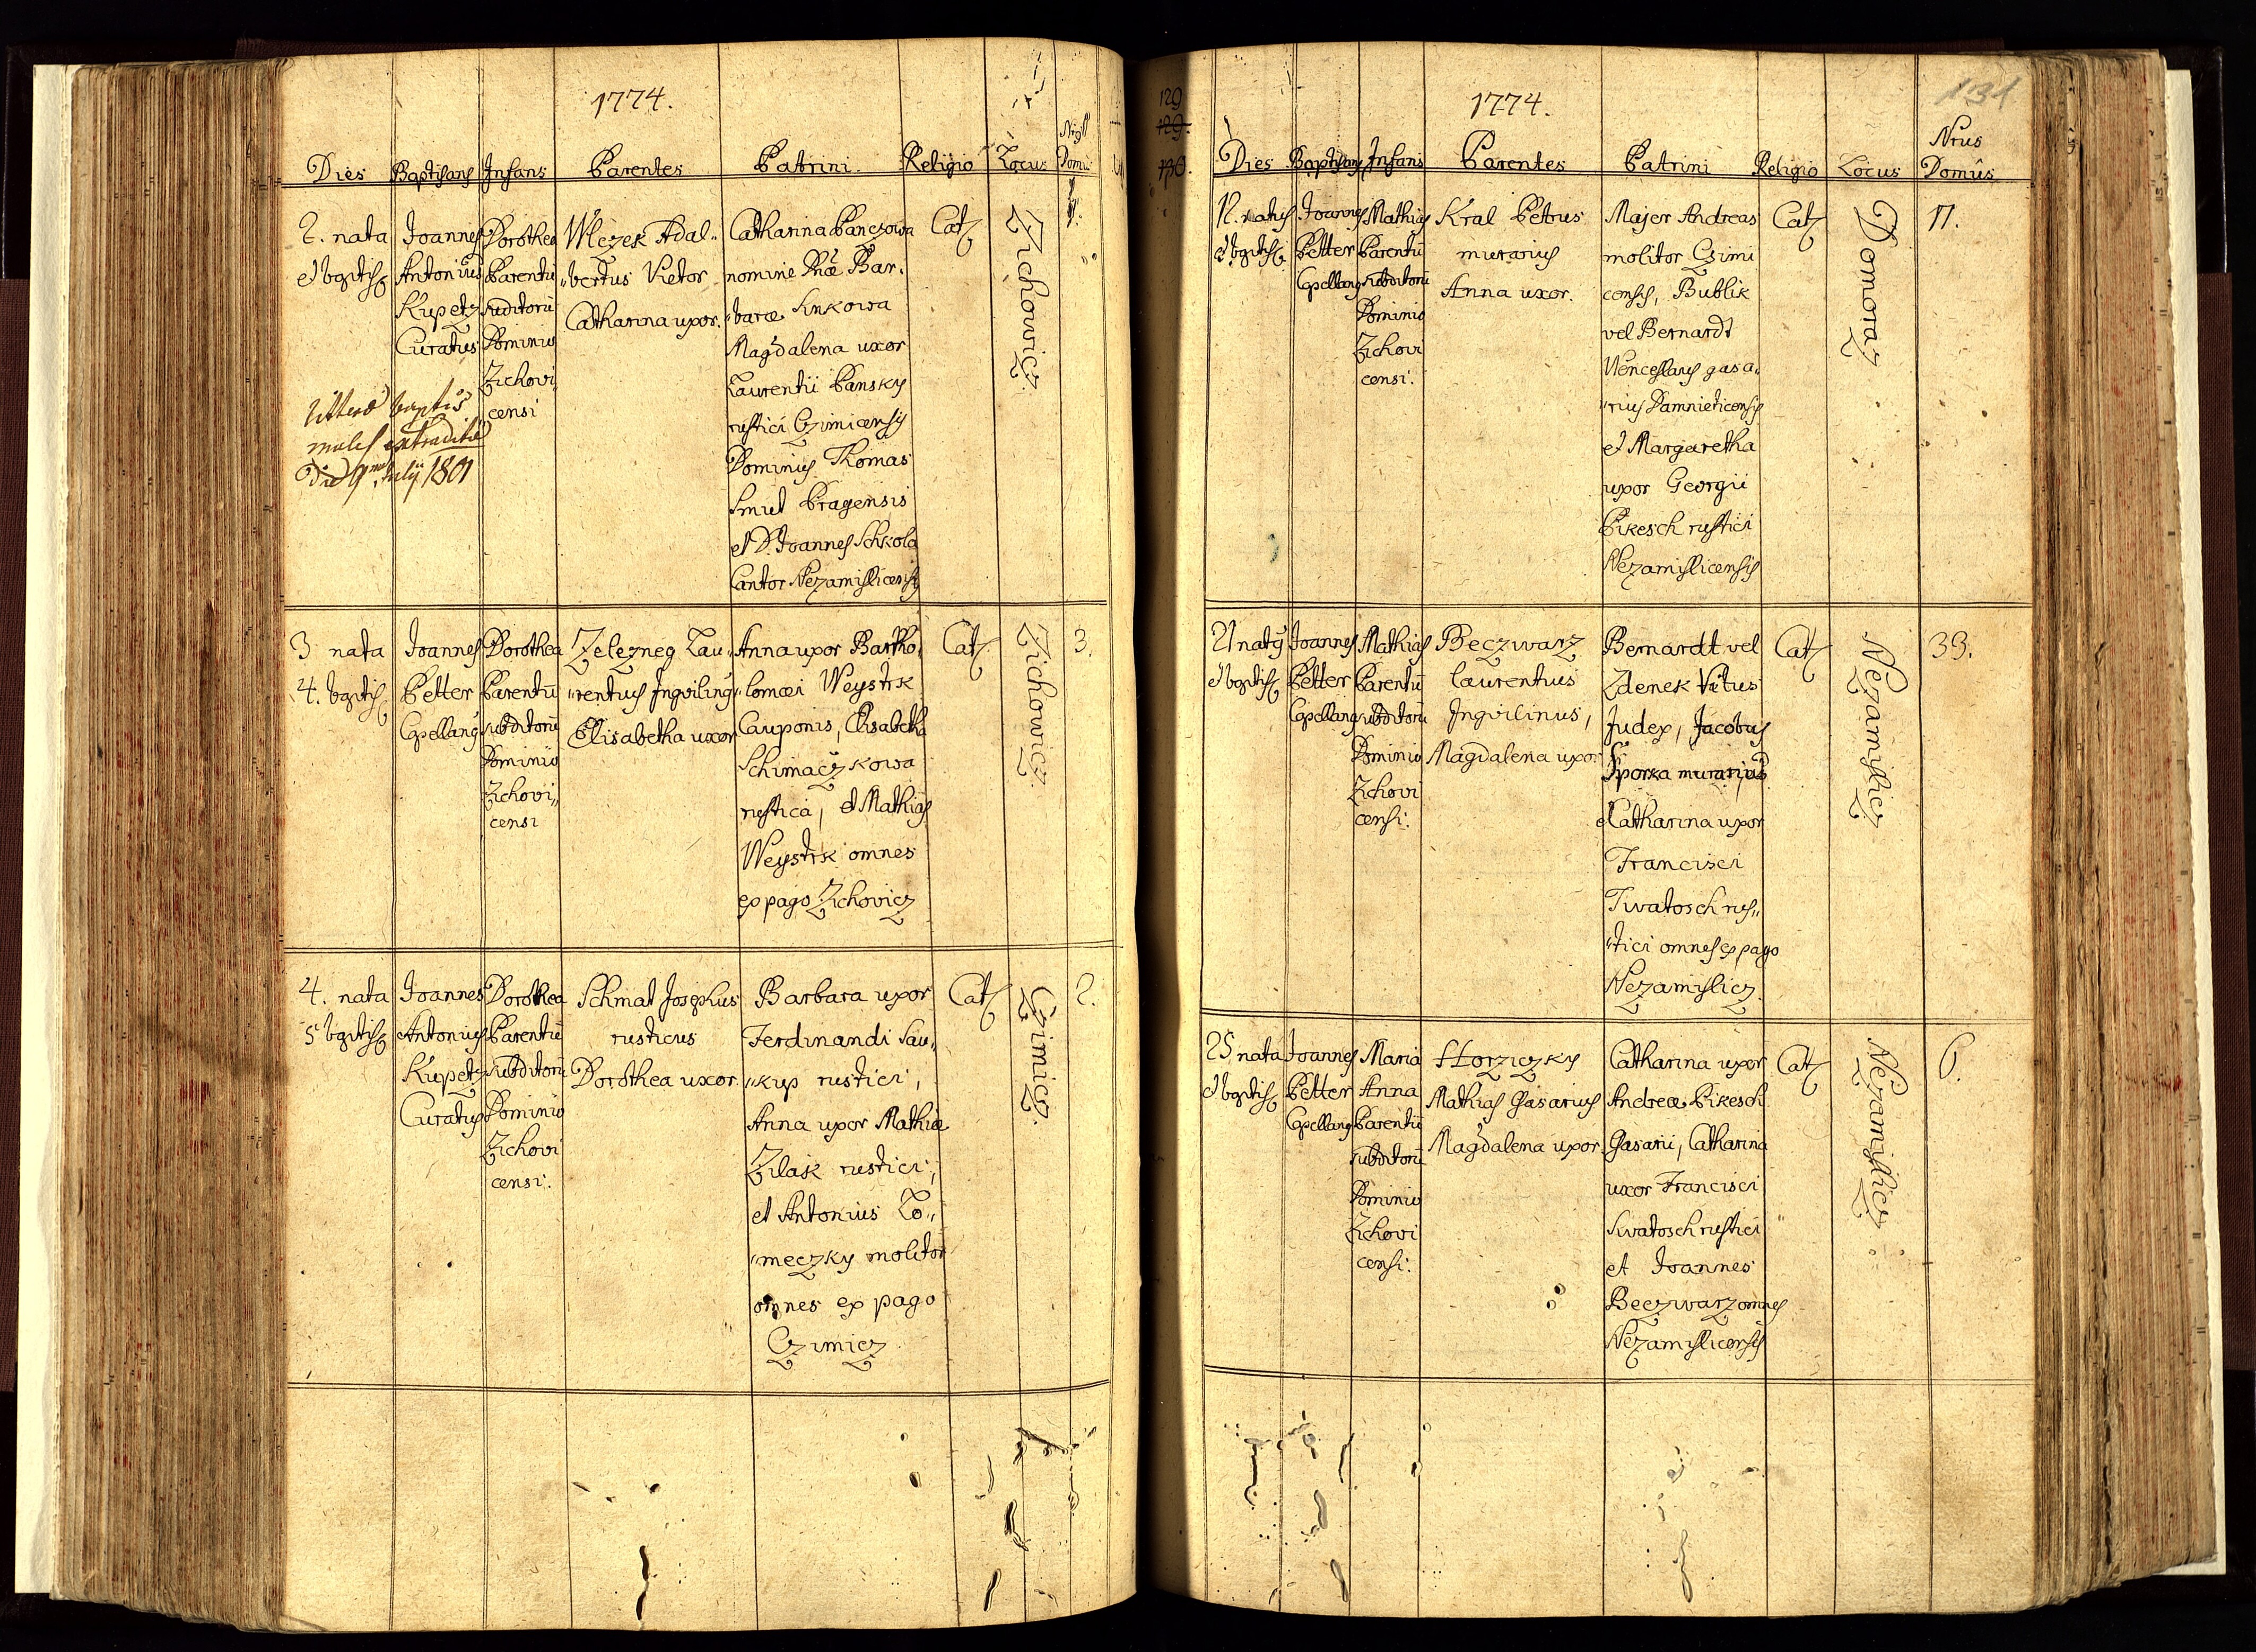 1774.
Dies Baptisans Infans Parentes Patrini. Religio Locus Domus
2. nata
et baptis
Joannes
Antonius
Kupetz
Curatus
Dorothea
Parentū
subditorū
Dominio
Zichovi
censi
Wlczek Adal„
„bertus Vietor
Catharina uxor.
Catharina Panczowa
nomine Dnæ Bar„
„baræ Sinkowa
Magdalena uxor
Laurentii Pansky
rustici Czimicensis
Dominus Thomas
Smut Pragensis
et D. Joannes Schkola
Cantor Nezamislicensis
Cat
Zichowicz.
Litteræ baptis
males extraditæ
Die 9 Julij 1801
3 nata
4. baptis
Joannes
Petter
Capellanus
Dorothea
Parentū
subditorū
Dominio
Zichovi„
censi
Zelezneg Lau„
„rentius Inquilinus
Elisabetha uxor
Anna uxor Bartho„
„lomæi Weystrk
Cauponis, Elisabetha
Schimaczkowa
rustica, et Mathias
Weystrk omnes
ex pago Zichovicz
Cat
Zichowicz.
3.
4. nata
5 baptis
Joannes
Antonius
Kupetz
Curatus
Dorothea
Parentū
subditorū
Dominio
Zichovi
censi.
Schmat Josephus
rusticus
Dorothea uxor.
Barbara uxor
Ferdinandi Sau„
„kup rustici,
Anna uxor Mathiæ
Zilak rustici,
et Antonius Lo„
„meczky molitor
omnes ex pago
Czimicz
Cat
Czimicz.
2.
129
129.
130.
131
1774.
Dies Baptisans Infans Parentes Patrini Religio Locus Nrus
Domûs
12. natus
et baptis
Joannes
Petter
Capellanus
Mathias
Parentū
subditorū
Dominio
Zichovi
censi.
Kral Petrus
murarius
Anna uxor.
Majer Andreas
molitor Czimi
censis, Bublik
vel Bernardt
Wenceslaus gasa„
„rius Damnieticensis
et Margaretha
uxor Georgii
Pikesch rustici
Nezamislicensis
Cat
Domoraz
17.
21 natus
et baptis
Joannes
Petter
Capellanus
Mathias
Parentū
subditorū
Dominio
Zichovi
censi.
Beczwarz
Laurentius
Inquilinus,
Magdalena uxor
Bernardt vel
Zdenek Vitus
Judex, Jacobus
Sporka murarius
et Catharina uxor
Francisci
Swatosch rus„
„tici omnes ex pago
Nezamislicz.
Cat
Nezamislicz
33.
25 nata
et baptis
Joannes
Petter
Capellanus
Maria
Anna
Parentū
subditorū
Dominio
Zichovi
censi.
Horziczky
Mathias Gasarius
Magdalena uxor.
Catharina uxor
Andreæ Pikesch
Gasarii, Catharina
uxor Francisci
Swatosch rustici
et Joannes
Beczwarz omnes
Nezamislicensis
Cat
Nezamislicz
6.